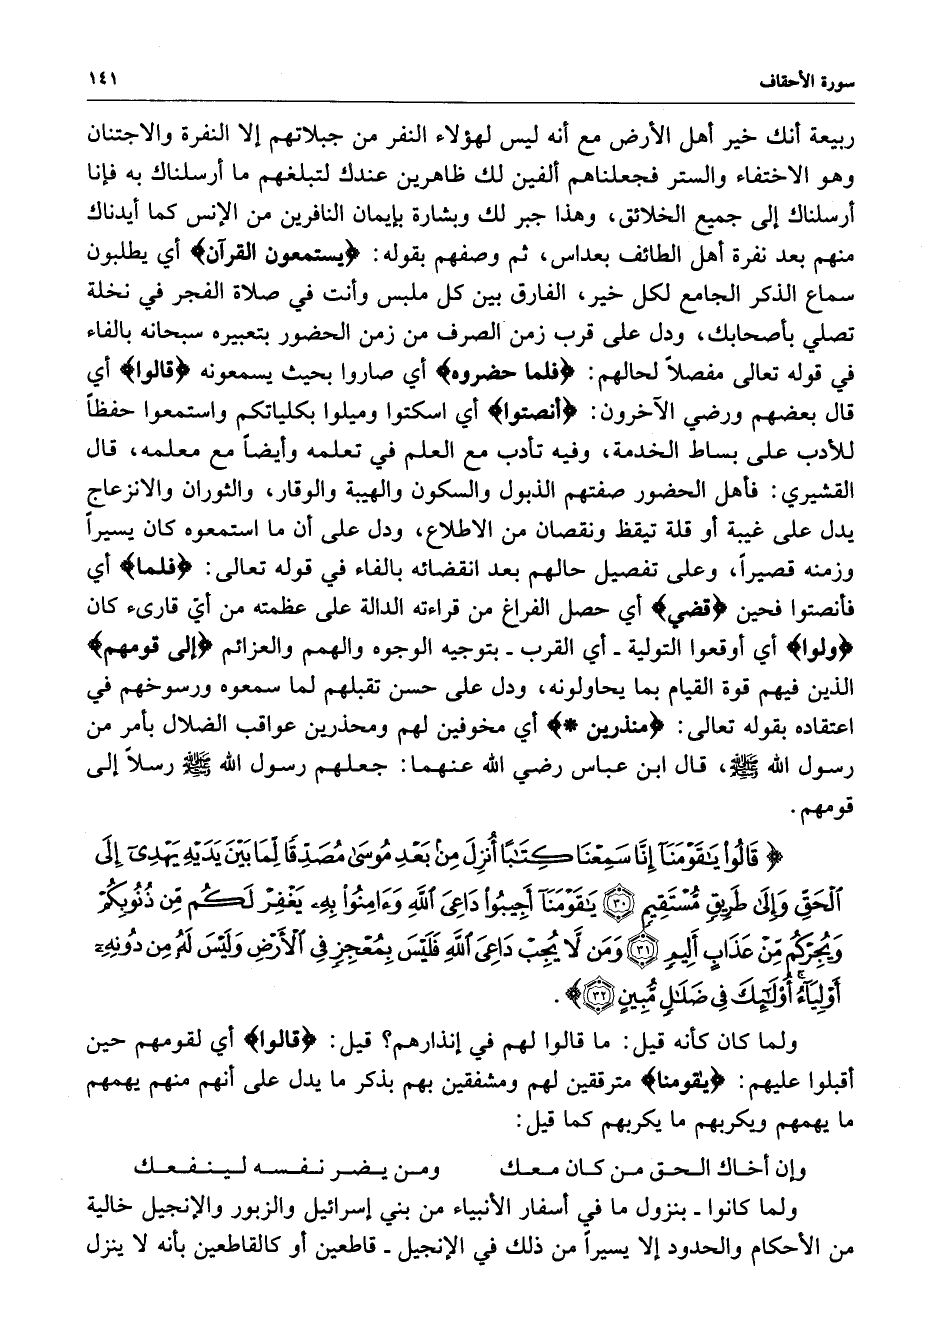 سورة الأحقاف ١٤١
ربيعة أنك خير أهل الأرض مع أنه ليس لهؤلاء النفر من جبلاتهم إلا النفرة والاجتنان
وهو الاختفاء والستر فجعلناهم ألفين لك ظاهرين عندك لتبلغهم ما أرسلناك به فإنا
أرسلناك إلى جميع الخلائق، وهذا جبر لك وبشارة بإيمان النافرين من الإنس كما أيدناك
منهم بعد نفرة أهل الطائف بعداس، ثم وصفهم بقوله: ﴿يستمعون القرآن﴾ أي يطلبون
سماع الذكر الجامع لكل خير، الفارق بين كل ملبس وأنت في صلاة الفجر في نخلة
تصلي بأصحابك، ودل على قرب زمن الصرف من زمن الحضور بتعبيره سبحانه بالفاء
في قوله تعالى مفصلاً لحالهم: ﴿فلما حضروه﴾ أي صاروا بحيث يسمعونه ﴿قالوا﴾ أي
قال بعضهم ورضي الآخرون: ﴿أنصتوا﴾ أي اسكتوا وميلوا بكلياتكم واستمعوا حفظاً
للأدب على بساط الخدمة، وفيه تأدب مع العلم في تعلمه وأيضاً مع معلمه، قال
القشيري: فأهل الحضور صفتهم الذبول والسكون والهيبة والوقار، والثوران والانزعاج
يدل على غيبة أو قلة تيقظ ونقصان من الاطلاع، ودل على أن ما استمعوه كان يسيراً
وزمنه قصيراً، وعلى تفصيل حالهم بعد انقضائه بالفاء في قوله تعالى: ﴿فلما﴾ أي
فأنصتوا فحين ﴿قضي﴾ أي حصل الفراغ من قراءته الدالة على عظمته من أيّ قارىء كان
﴿ولوا﴾ أي أوقعوا التولية ـ أي القرب ـ بتوجيه الوجوه والهمم والعزائم ﴿إلى قومهم﴾
الذين فيهم قوة القيام بما يحاولونه، ودل على حسن تقبلهم لما سمعوه ورسوخهم في
اعتقاده بقوله تعالى: ﴿منذرين *﴾ أي مخوفين لهم ومحذرين عواقب الضلال بأمر من
رسول الله ﷺ، قال ابن عباس رضي الله عنهما: جعلهم رسول الله ﷺ رسلاً إلى
قومهم.
﴿ قَالُوا۟ يَٰقَوْمَنَآ إِنَّا سَمِعْنَا كِتَٰبًا أُنزِلَ مِنۢ بَعْدِ مُوسَىٰ مُصَدِّقًا لِّمَا بَيْنَ يَدَيْهِ يَهْدِىٓ إِلَى
ٱلْحَقِّ وَإِلَىٰ طَرِيقٍ مُّسْتَقِيمٍ ٣٠ يَٰقَوْمَنَآ أَجِيبُوا۟ دَاعِىَ ٱللَّهِ وَءَامِنُوا۟ بِهِۦ يَغْفِرْ لَكُم مِّن ذُنُوبِكُمْ
وَيُجِرْكُم مِّنْ عَذَابٍ أَلِيمٍ ٣١ وَمَن لَّا يُجِبْ دَاعِىَ ٱللَّهِ فَلَيْسَ بِمُعْجِزٍ فِى ٱلْأَرْضِ وَلَيْسَ لَهُۥ مِن دُونِهِۦٓ
أَوْلِيَآءُ ۚ أُو۟لَٰٓئِكَ فِى ضَلَٰلٍ مُّبِينٍ ٣٢ ﴾.
ولما كان كأنه قيل: ما قالوا لهم في إنذارهم؟ قيل: ﴿قالوا﴾ أي لقومهم حين
أقبلوا عليهم: ﴿يقومنا﴾ مترققين لهم ومشفقين بهم بذكر ما يدل على أنهم منهم يهمهم
ما يهمهم ويكربهم ما يكربهم كما قيل:
وإن أخاك الحق من كان معك ومن يضر نفسه لينفعك
ولما كانوا ـ بنزول ما في أسفار الأنبياء من بني إسرائيل والزبور والإنجيل خالية
من الأحكام والحدود إلا يسيراً من ذلك في الإنجيل ـ قاطعين أو كالقاطعين بأنه لا ينزل